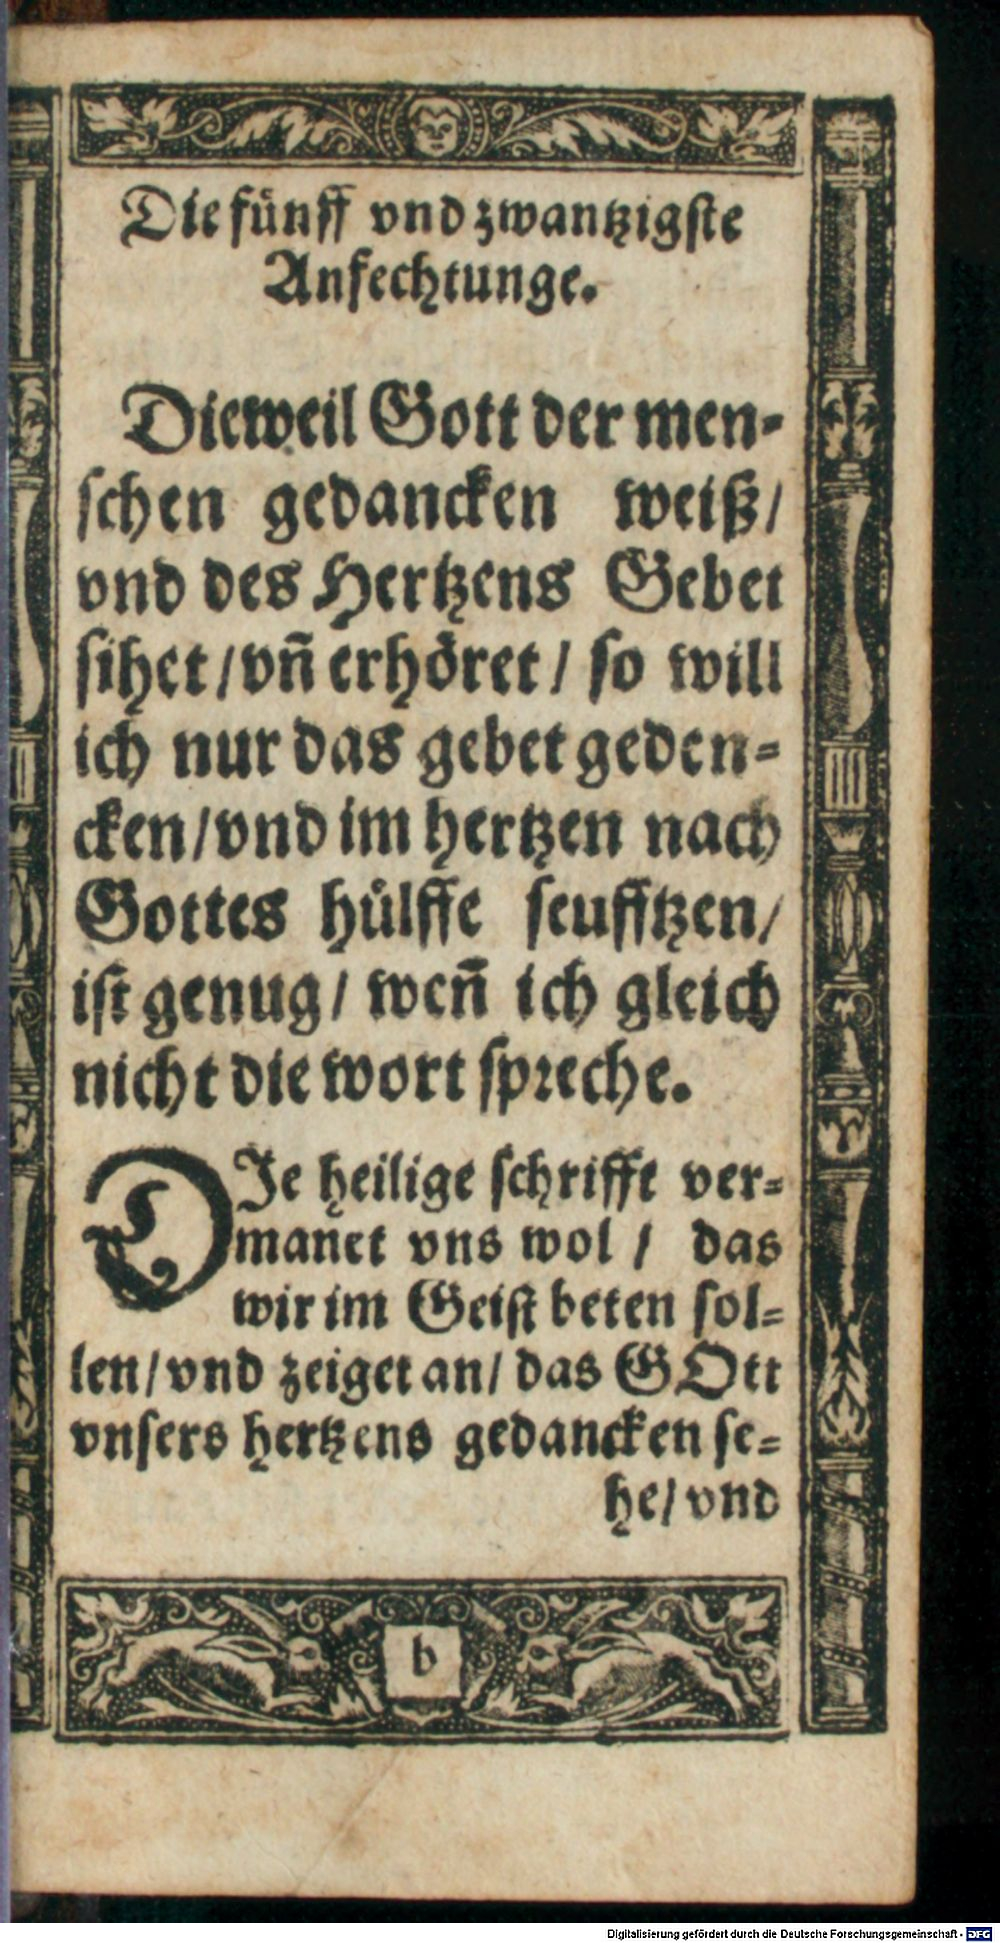 Die fünff vnd zwantzigste
Anfechtunge.
Dieweil Gott der men-
schen gedancken weiß/
vnd des Hertzens Gebet
sihet/vn̄ erhöret/ so will
ich nur das gebet geden-
cken/vnd im hertzen nach
Gottes hülffe seufftzen/
ist genug/ wen̄ ich gleich
nicht die wort spreche.
DIe heilige schrifft ver-
manet vns wol/ das
wir im Geist beten sol-
len/vnd zeiget an/ das GOtt
vnsers hertzens gedancken se-
he/vnd
b
Digitalisierung gefördert durch die Deutsche Forschungsgemeinschaft - DFG